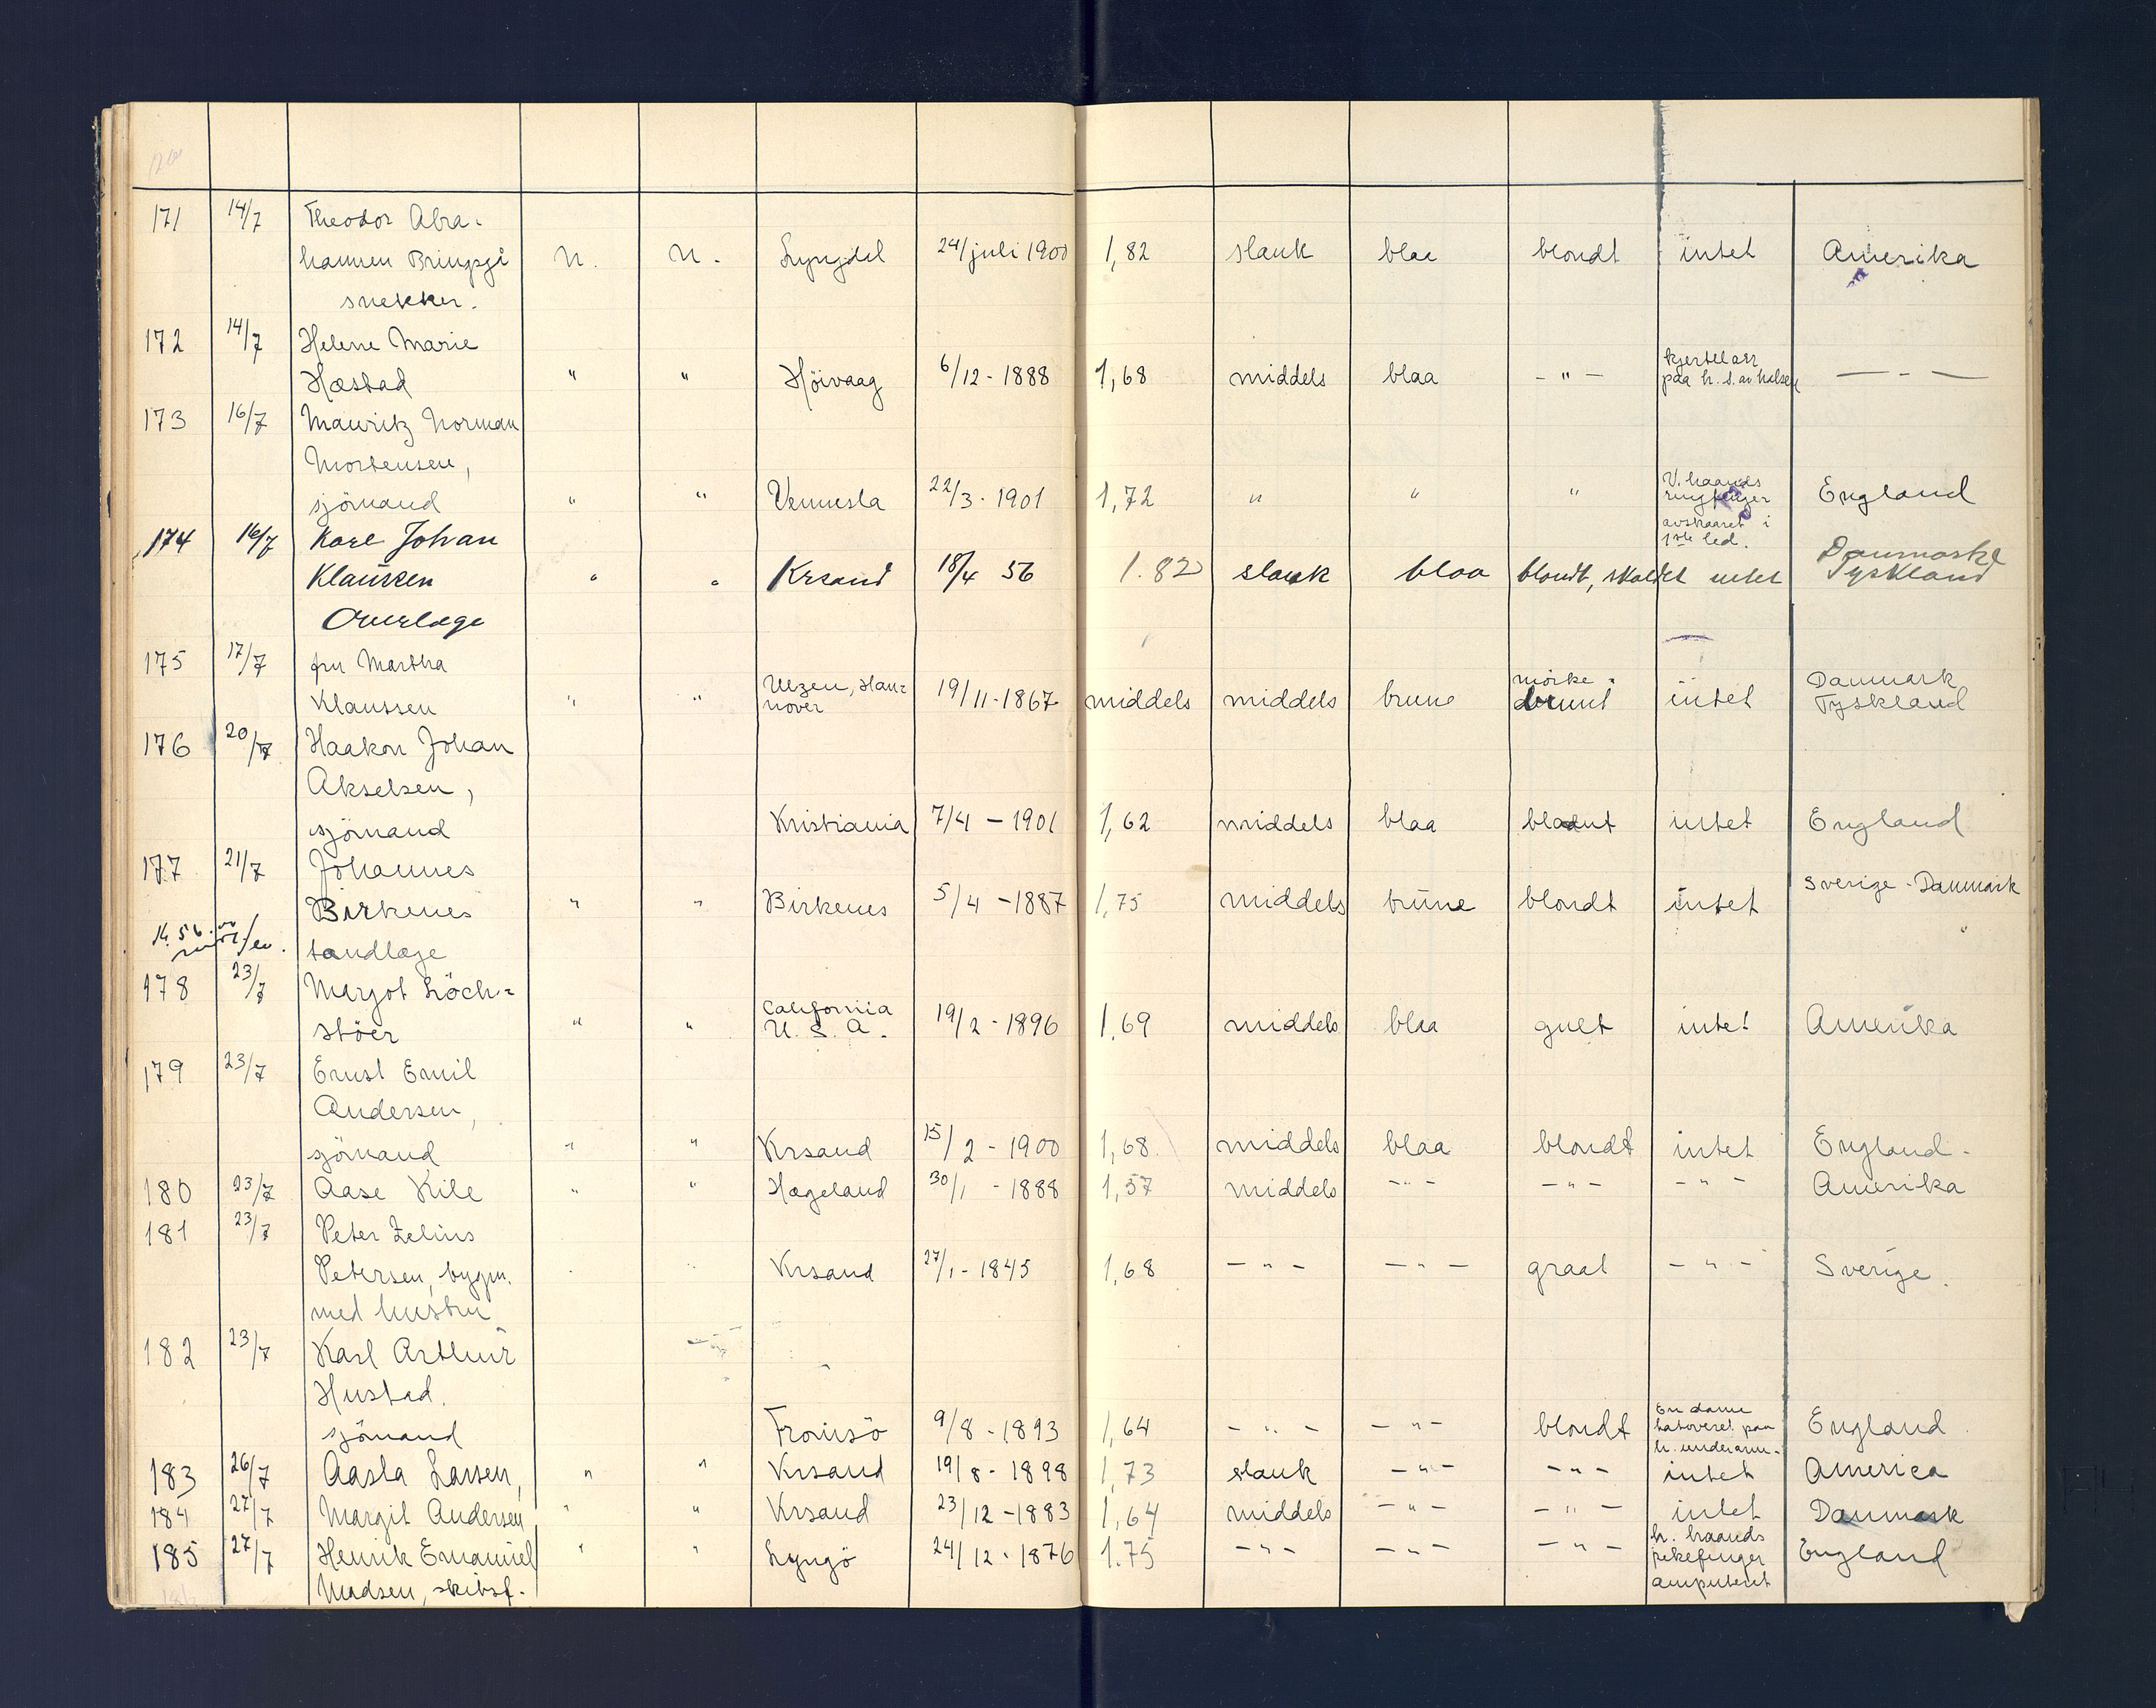 171 14/7 Theodor Abra-
hamsen Bringsji N. N. Lyngdal 24/juli 1900 1,82 slank blaa blondt intet Amerika
snekker.
172 14/7 Helene Marie
Hæstad " " Höivaag 6/12-1888 1,68 middels blaa -"- kjertelarr paa h. s. av halsen — - —
173 16/7 Mauritz Norman
Mortensen,
sjömand " " Vennesla 22/3-1901 1,72 " " " V. haands ringfinger avskaaret i 1ste led. England
174 16/7 Karl Johan
Klaussen " " Krsand 18/4 56 1.82 slank blaa blondt, skaldet intet Danmark Tyskland
Overlæge
175 17/7 fru Martha
Klaussen " " Ulzen, Han-nover 19/11-1867 middels middels brune mörke-brunt intet Danmark Tyskland
176 20/7 Haakon Johan
Akselsen,
sjömand Kristiania 7/4-1901 1,62 middels blaa intet England
177 21/7 Johannes
Birkenes " " Birkenes 5/4-1887 1,75 middels brune blondt intet Sverige-Danmark
tandlæge
178 23/7 Margot Löch-
stöer " " California U.S.A. 19/2-1896 1.69 middels blaa gult intet Amerika
179 23/7 Ernst Emil
Andersen,
sjömand " " Krsand 15/2-1900 1,68 middels blaa blondt intet England-
180 23/7 Aase Kile " " Hægeland 30/1-1888 1,57 middels -"- -"- -"- Amerika
181 23/7 Peter Zelius
Petersen, bygm. " " Krsand 27/1-1845 1,68 -"- -"- graat -"- Sverige.
med hustru
182 23/7 Karl Arthur
Hustad.
sjömand Tromsö 9/8-1893 1,64 -"- -"- blondt En dame tatoveret paa h. underarm- England
183 26/7 Aasta Larsen, " " Krsand 19/8-1898 1,73 slank -"- -"- intet America
184 27/7 Margit Andersen " " Krsand 23/12-1883 1,64 middels -"- -"- intet Danmark
185 27/7 Henrik Emanuel " " Lyngö 24/12-1876 1.75 -"- -"- -"- h. haands pekefinger amputeret England
Madsen, skibsf.